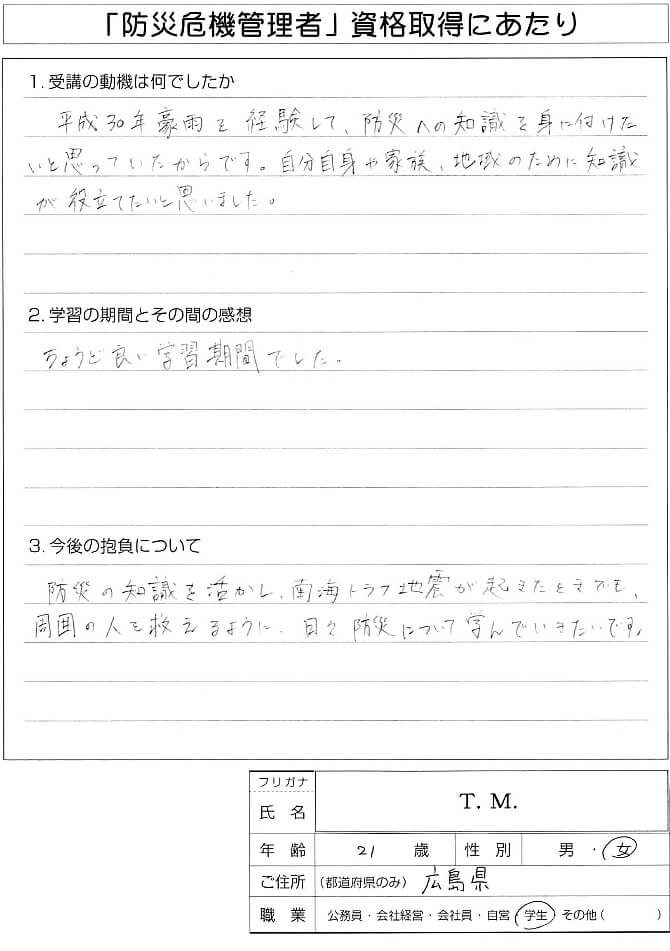 「防災危機管理者」資格取得にあたり
1. 受講の動機は何でしたか
平成30年豪雨を経験して、防災への知識を身に付けた
いと思っていたからです。自分自身や家族、地域のために知識
が役立てたいと思いました。
2. 学習の期間とその間の感想
ちょうど良い学習期間でした。
3. 今後の抱負について
防災の知識を活かし、南海トラフ地震が起きたときでも、
周囲の人を救えるように、日々防災について学んでいきたいです。
フリガナ
氏 名 T. M.
年 齢 21 歳 性 別 男 ・ 女
ご住所 (都道府県のみ) 広島県
職 業 公務員・会社経営・会社員・自営 学生 その他 ( )